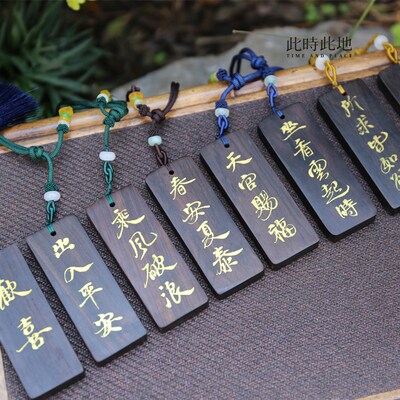 此時此地
TIME AND PLACE
歡喜
出入平安
乘風破浪
春安夏泰
天官賜福
坐看雲起時
所求皆如願